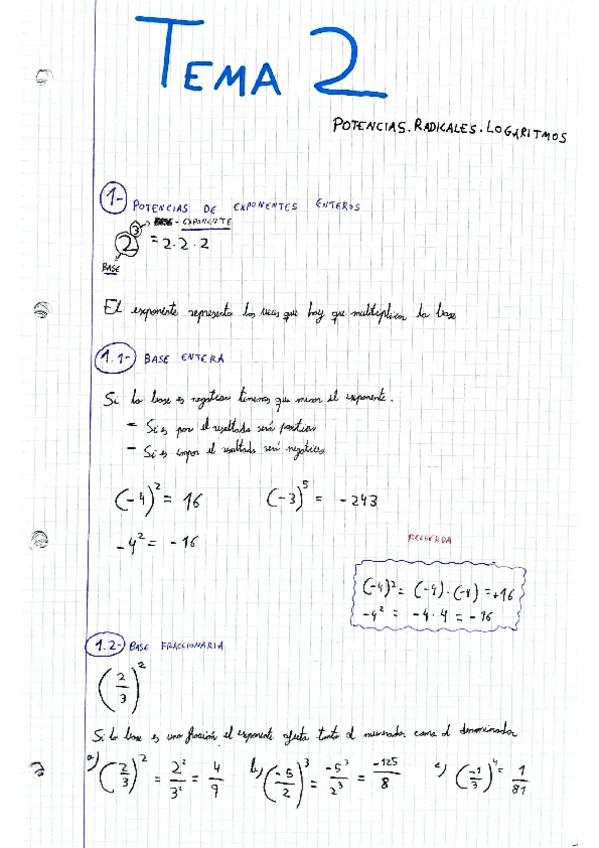 TEMA 2
POTENCIAS. RADICALES. LOGARITMOS
1- POTENCIAS DE EXPONENTES ENTEROS
EXPONENTE
2³ = 2·2·2
BASE
El exponente representa las veces que hay que multiplicar la base
1.1- BASE ENTERA
Si la base es negativa tenemos que mirar el exponente.
- Si es par el resultado será positivo
- Si es impar el resultado será negativo
(-4)² = 16 (-3)⁵ = -243
-4² = -16
RECUERDA
(-4)² = (-4)·(-4) = +16
-4² = -4·4 = -16
1.2- BASE FRACCIONARIA
(2/3)²
Si la base es una fracción el exponente afecta tanto al numerador como al denominador
a) (2/3)² = 2²/3² = 4/9 b) (-5/2)³ = -5³/2³ = -125/8 c) (-1/3)⁴ = 1/81